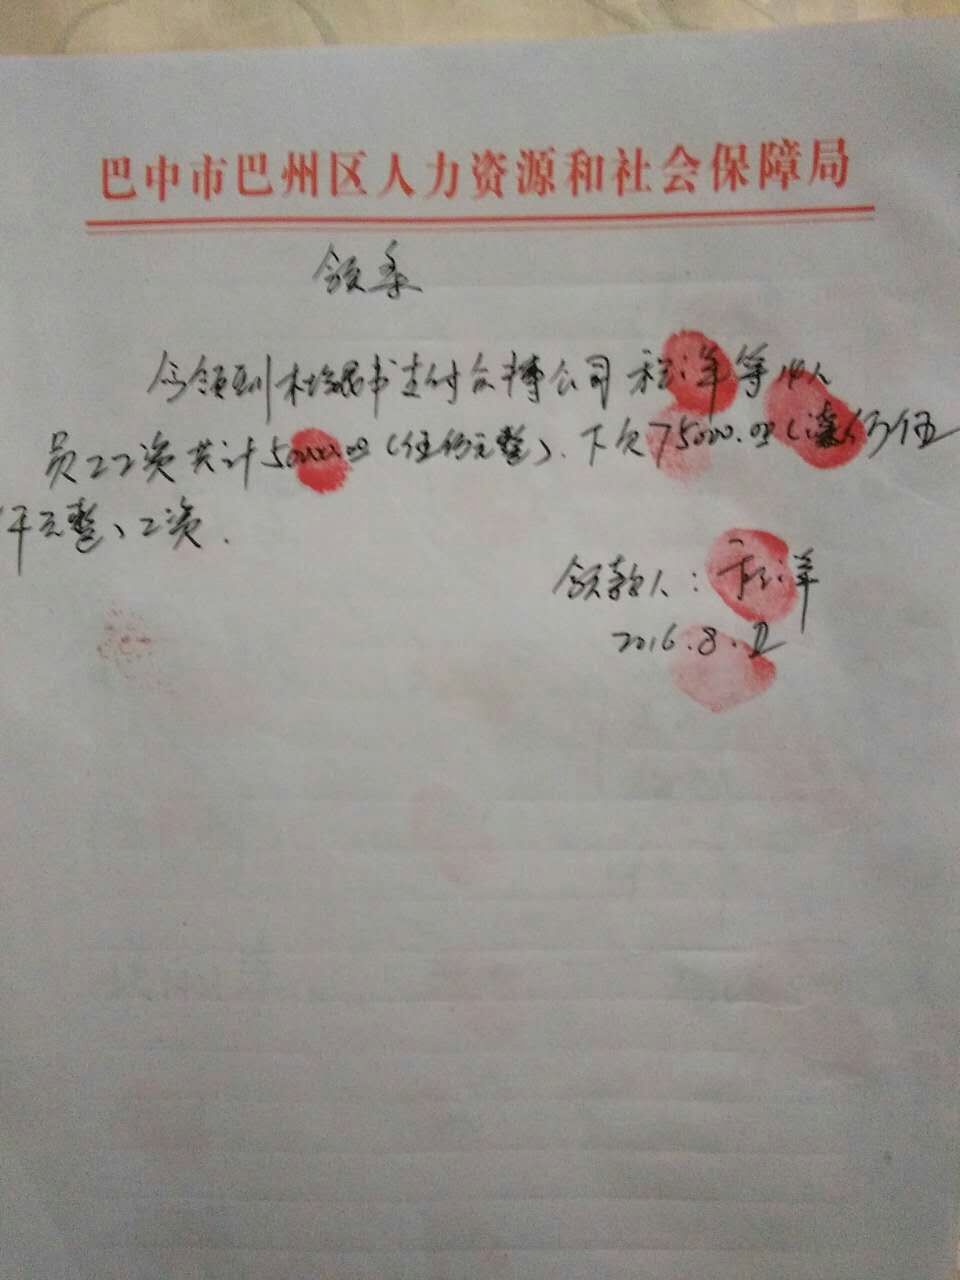 巴中市巴州区人力资源和社会保障局
领条
今领到杜绍书支付众博公司 程洋等人
员工工资共计50000.00(伍仟元整)、下欠75000.00(柒万伍
仟元整)工资.
领款人:程洋
2016.8.